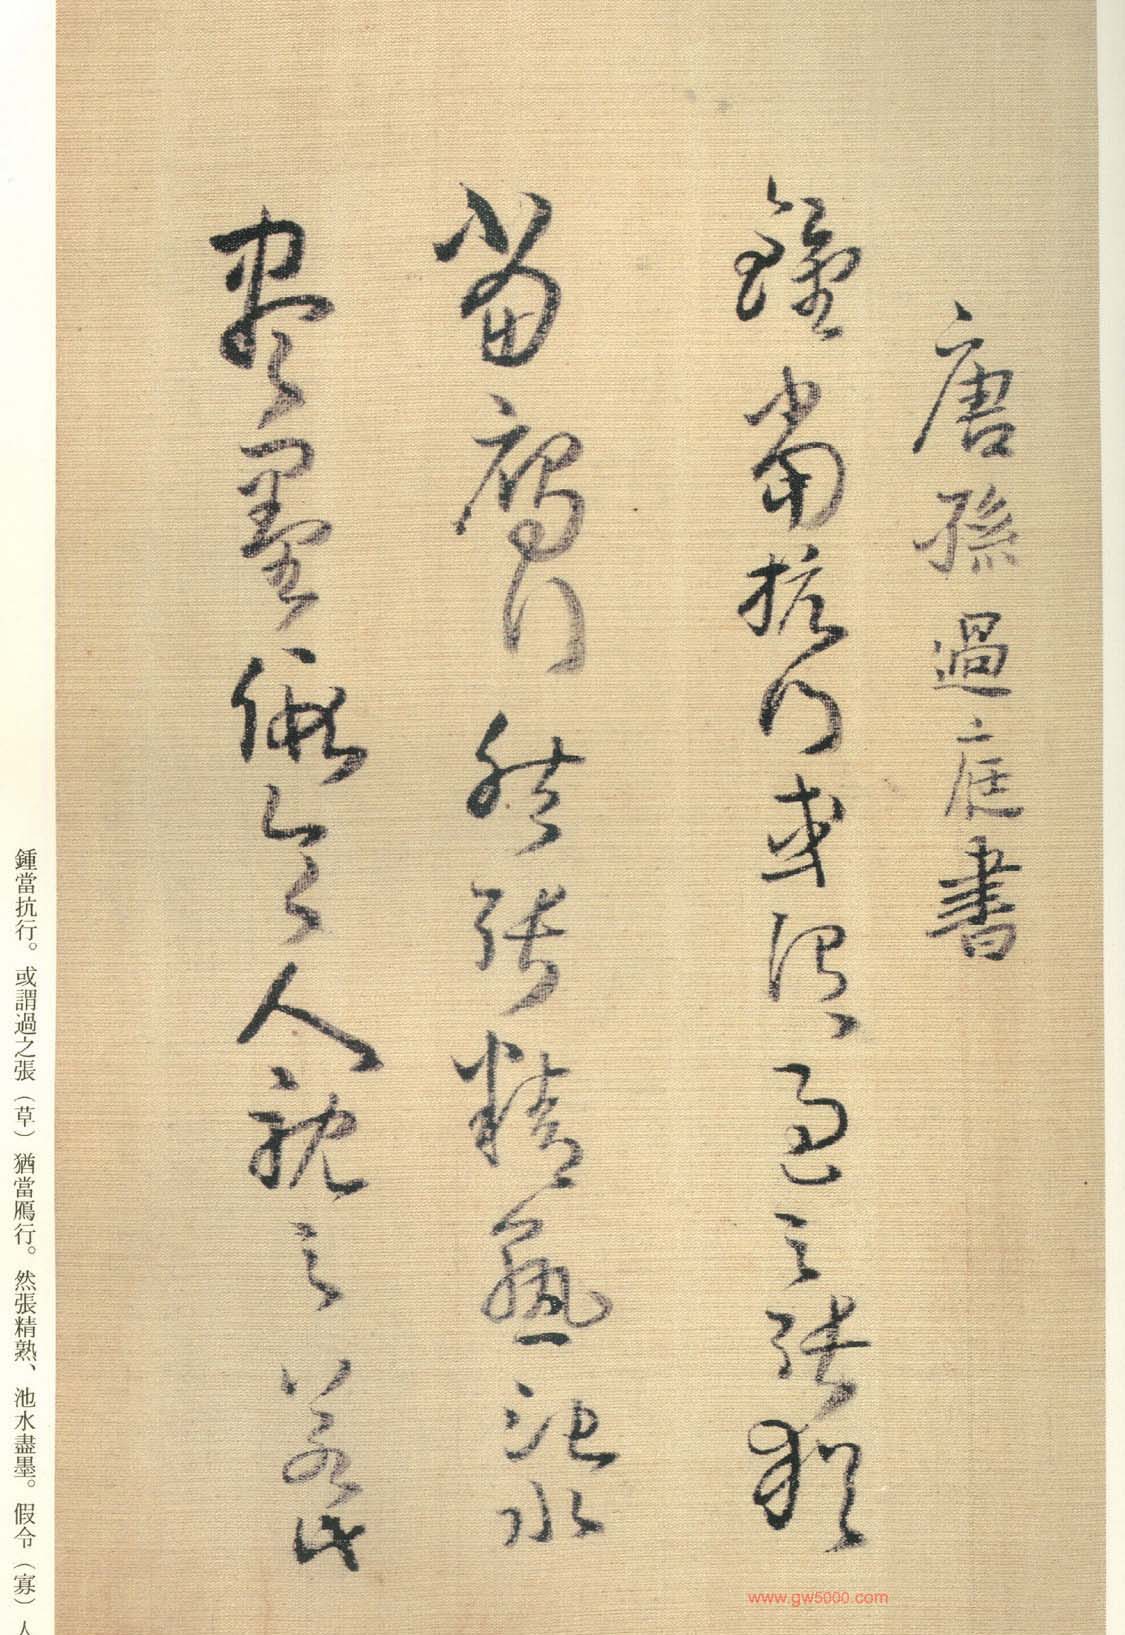 唐孫過庭書
鍾當抗行或謂過之張猶
當鴈行然張精熟池水
盡墨假令人耽之若此
鍾當抗行。或謂過之張（草）猶當鴈行。然張精熟、池水盡墨。假令（寡）人
www.gw5000.com